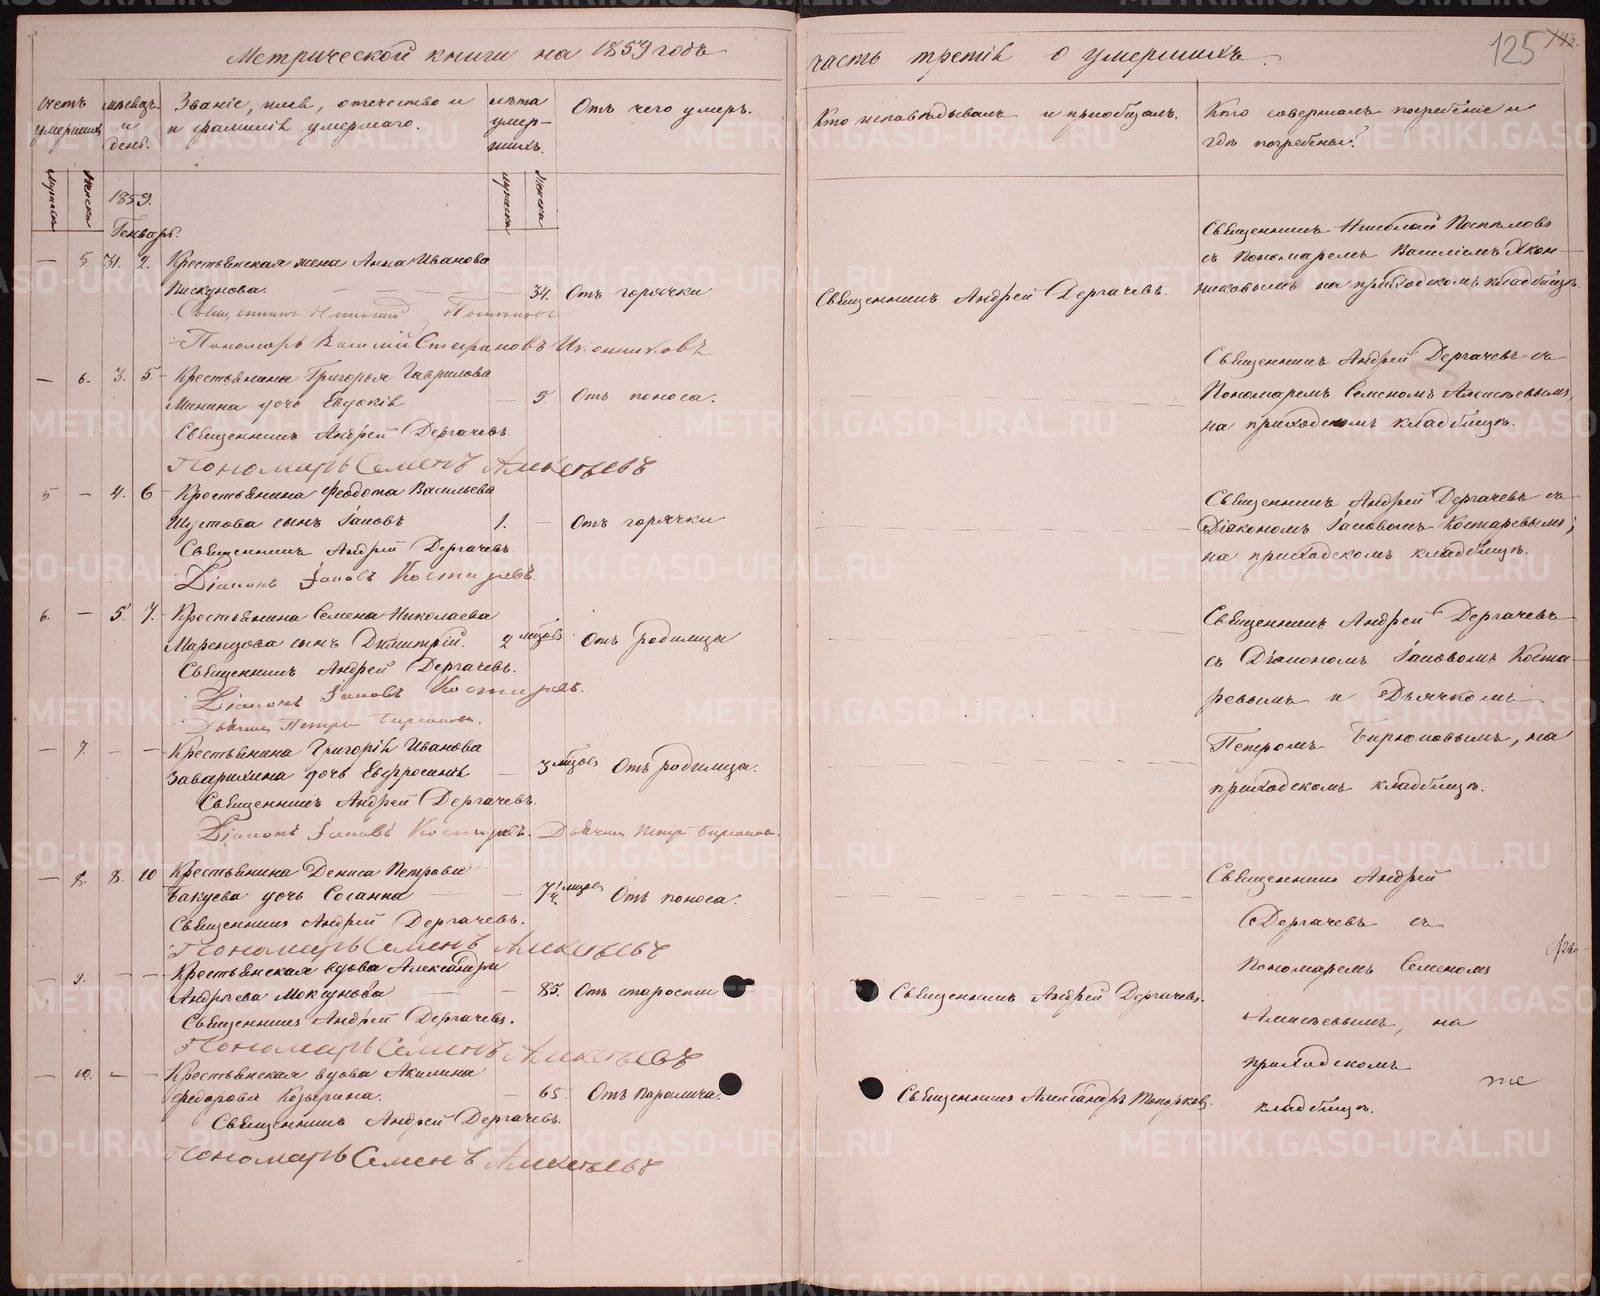 Метрической книги на 1859 годъ
часть третія о умершихъ.
125
Счетъ умершихъ
Мужеска
Женска
мѣсяцъ и день.
Званіе, имя, отечество и
и фамилія умершаго.
лѣта умер-
шихъ.
мужеска
Женска
Отъ чего умеръ.
Кто исповѣдывалъ и пріобщалъ.
Кто совершалъ погребеніе и
гдѣ погребены?
1859.
Генварь.
— 5 31. 2. Крестьянская жена Анна Иванова
Пискунова. — — — 34. Отъ горячки
Священникъ Николай
Пономарь Василій Стефановъ Иконниковъ
Священникъ Андрей Дергачевъ.
Священникъ Николай
съ Пономаремъ Василіемъ Икон-
никовымъ на приходскомъ кладбищѣ.
— 6. 3. 5. Крестьянина Григорья Гаврилова
Минина дочь Евдокія — 5 Отъ поноса.
Священникъ Андрей Дергачевъ
Пономарь Семенъ Алексѣевъ
Священникъ Андрей Дергачевъ съ
Пономаремъ Семеномъ Алексѣевымъ,
на приходскомъ кладбищѣ.
5 — 4. 6 Крестьянина Феодота Васильева
Шустова сынъ Іаковъ 1. — Отъ горячки
Священникъ Андрей Дергачевъ.
Діаконъ Іаковъ Костаревъ.
Священникъ Андрей Дергачевъ съ
Діакономъ Іаковомъ Костаревымъ;
на приходскомъ кладбищѣ.
6. — 5. 7. Крестьянина Семена Николаева
сынъ Димитрій. 2 мѣсяцъ Отъ родимца
Священникъ Андрей Дергачевъ.
Діаконъ Іаковъ Костаревъ.
Дьячекъ Петръ Бирюковъ.
Священникъ Андрей Дергачевъ
съ Діакономъ Іаковомъ Коста-
ревымъ и Дьячкомъ
Петромъ Бирюковымъ, на
приходскомъ кладбищѣ.
— 7 — — Крестьянина Григорія Иванова
Заварихина дочь Евфросинія — 3 мѣсяцъ Отъ родимца.
Священникъ Андрей Дергачевъ.
Діаконъ Іаковъ Костаревъ. Дьячекъ Петръ Бирюковъ.
— 8. 8. 10 Крестьянина Дениса Петрова
Бакуева дочь Сосанна — — Отъ поноса.
Священникъ Андрей Дергачевъ.
Пономарь Семенъ Алексѣевъ
Священникъ Андрей
Дергачевъ съ
Пономаремъ Семеномъ
Алексѣевымъ, на
приходскомъ
кладбищѣ.
— 9. — — Крестьянская вдова Александра
Андреева Мокунова — — 85. Отъ старости
Священникъ Андрей Дергачевъ.
Священникъ Андрей Дергачевъ.
Пономарь Семенъ Алексѣевъ
— 10. — — Крестьянская вдова Акилина
Федорова Козырина. — 65. Отъ Паралича.
Священникъ Александръ Топорковъ.
Священникъ Андрей Дергачевъ.
Пономарь Семенъ Алексѣевъ
METRIKI.GASO-URAL.RU